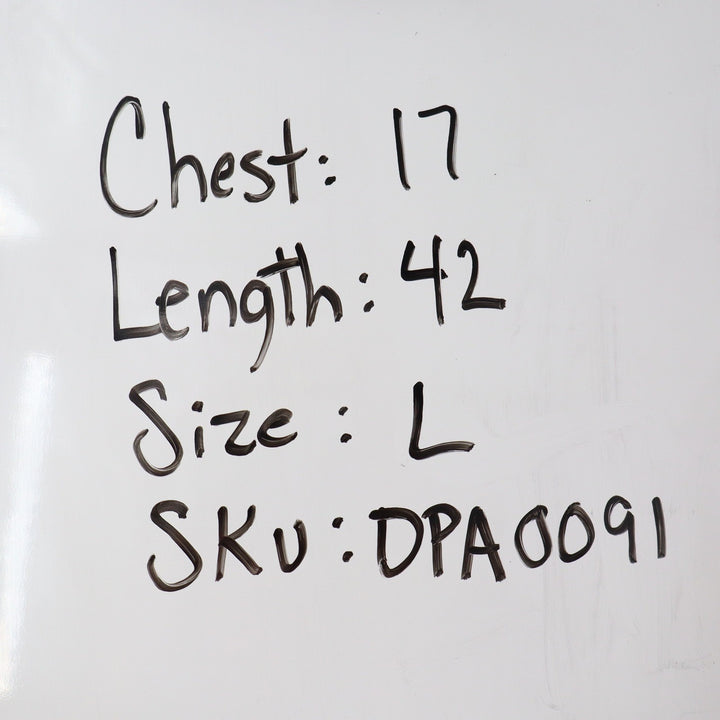 Chest: 17
Length: 42
Size: L
SKU: DPA0091